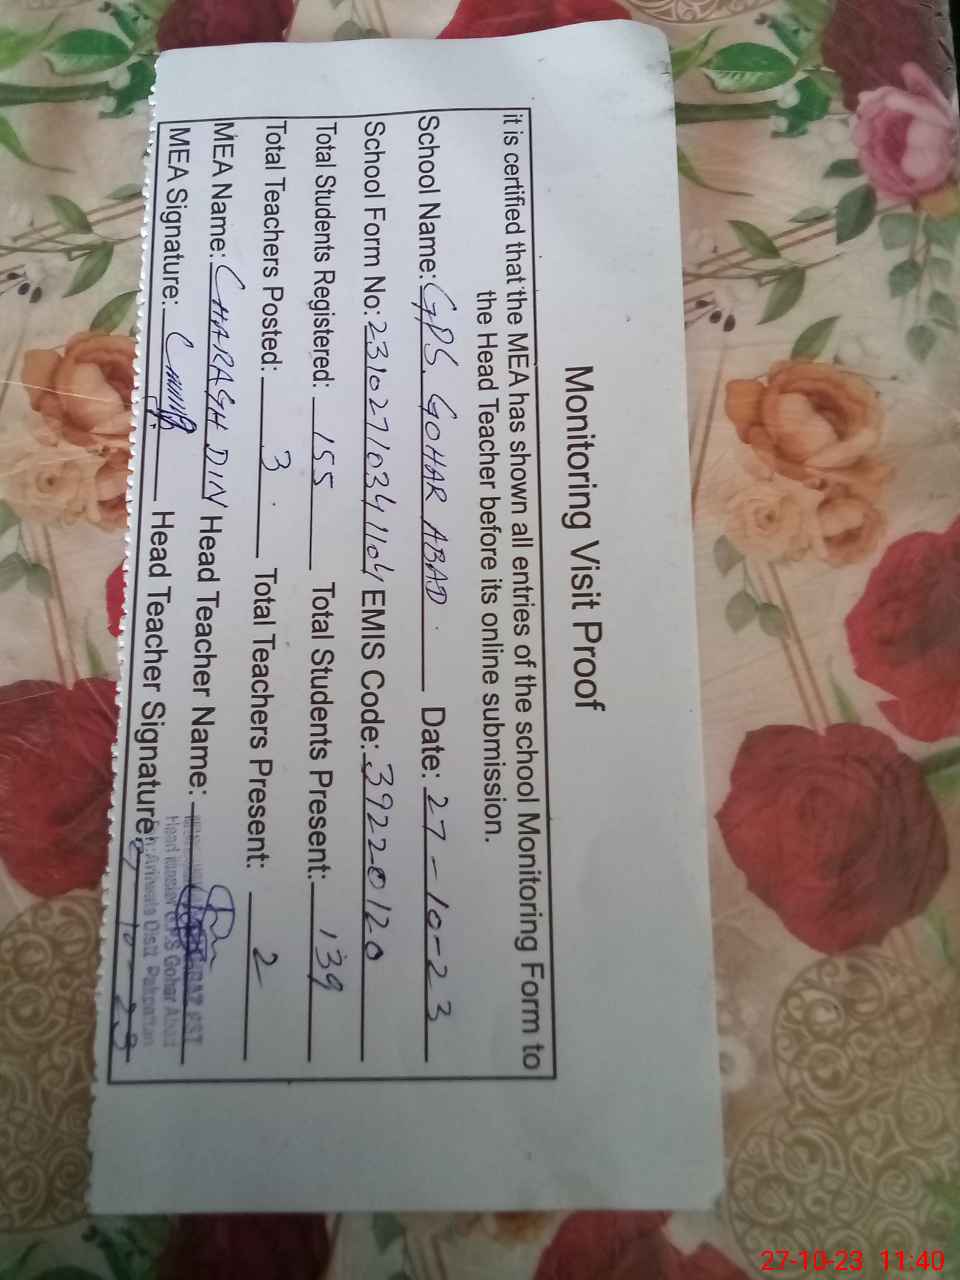 Monitoring Visit Proof
it is certified that the MEA has shown all entries of the school Monitoring Form to
the Head Teacher before its online submission.
School Name: GPS. GOHAR ABAD. Date: 27-10-23
School Form No: 23102710341104 EMIS Code: 39220120
Total Students Registered: 155 Total Students Present: 139
Total Teachers Posted: 3. Total Teachers Present: 2
MEA Name: CHARAGH DIN Head Teacher Name: PST
Head GPS Gohar Abad
MEA Signature: Head Teacher Signature: Distt. Pakpattan
10-23
27-10-23 11:40